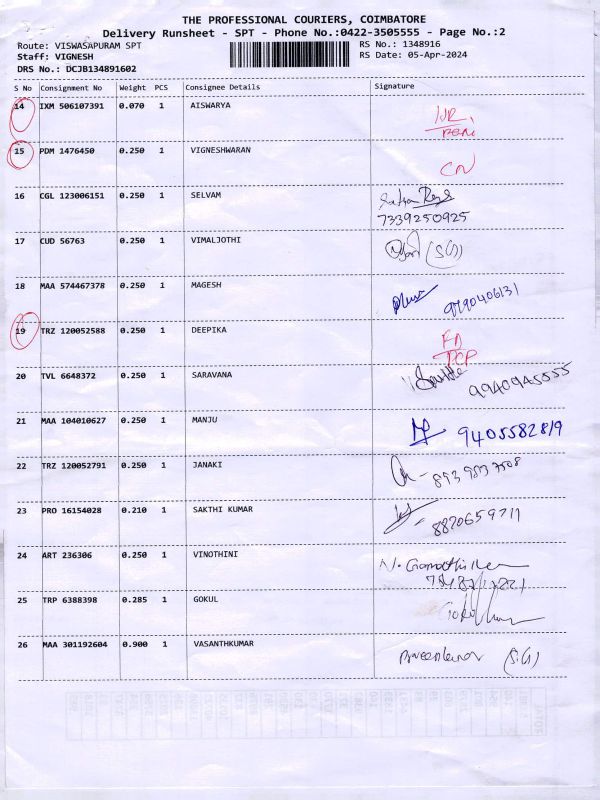 THE PROFESSIONAL COURIERS, COIMBATORE
Delivery Runsheet - SPT - Phone No.:0422-3505555 - Page No.:2
Route: VISWASAPURAM SPT RS No.: 1348916
Staff: VIGNESH RS Date: 05-Apr-2024
DRS No.: DCJB134891602
S No Consignment No Weight PCS Consignee Details Signature
14 IXM 506107391 0.070 1 AISWARYA
15 PDM 1476450 0.250 1 VIGNESHWARAN
CN
16 CGL 123006151 0.250 1 SELVAM
7339250925
17 CUD 56763 0.250 1 VIMALJOTHI
(SG)
18 MAA 574467378 0.250 1 MAGESH
9790406131
19 TRZ 120052588 0.250 1 DEEPIKA
20 TVL 6648372 0.250 1 SARAVANA
9940945555
21 MAA 104010627 0.250 1 MANJU
9405582819
22 TRZ 120052791 0.250 1 JANAKI
23 PRO 16154028 0.210 1 SAKTHI KUMAR
8820659711
24 ART 236306 0.250 1 VINOTHINI
25 TRP 6388398 0.285 1 GOKUL
26 MAA 301192604 0.900 1 VASANTHKUMAR
(SG)